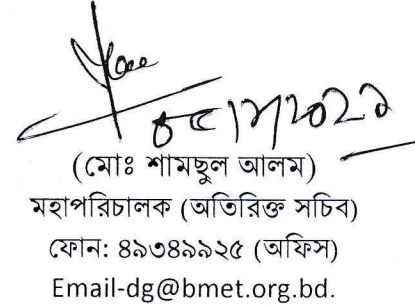 (মোঃ শামছুল আলম)
মহাপরিচালক (অতিরিক্ত সচিব)
ফোন: ৪৯৩৪৯৯২৫ (অফিস)
Email-dg@bmet.org.bd.